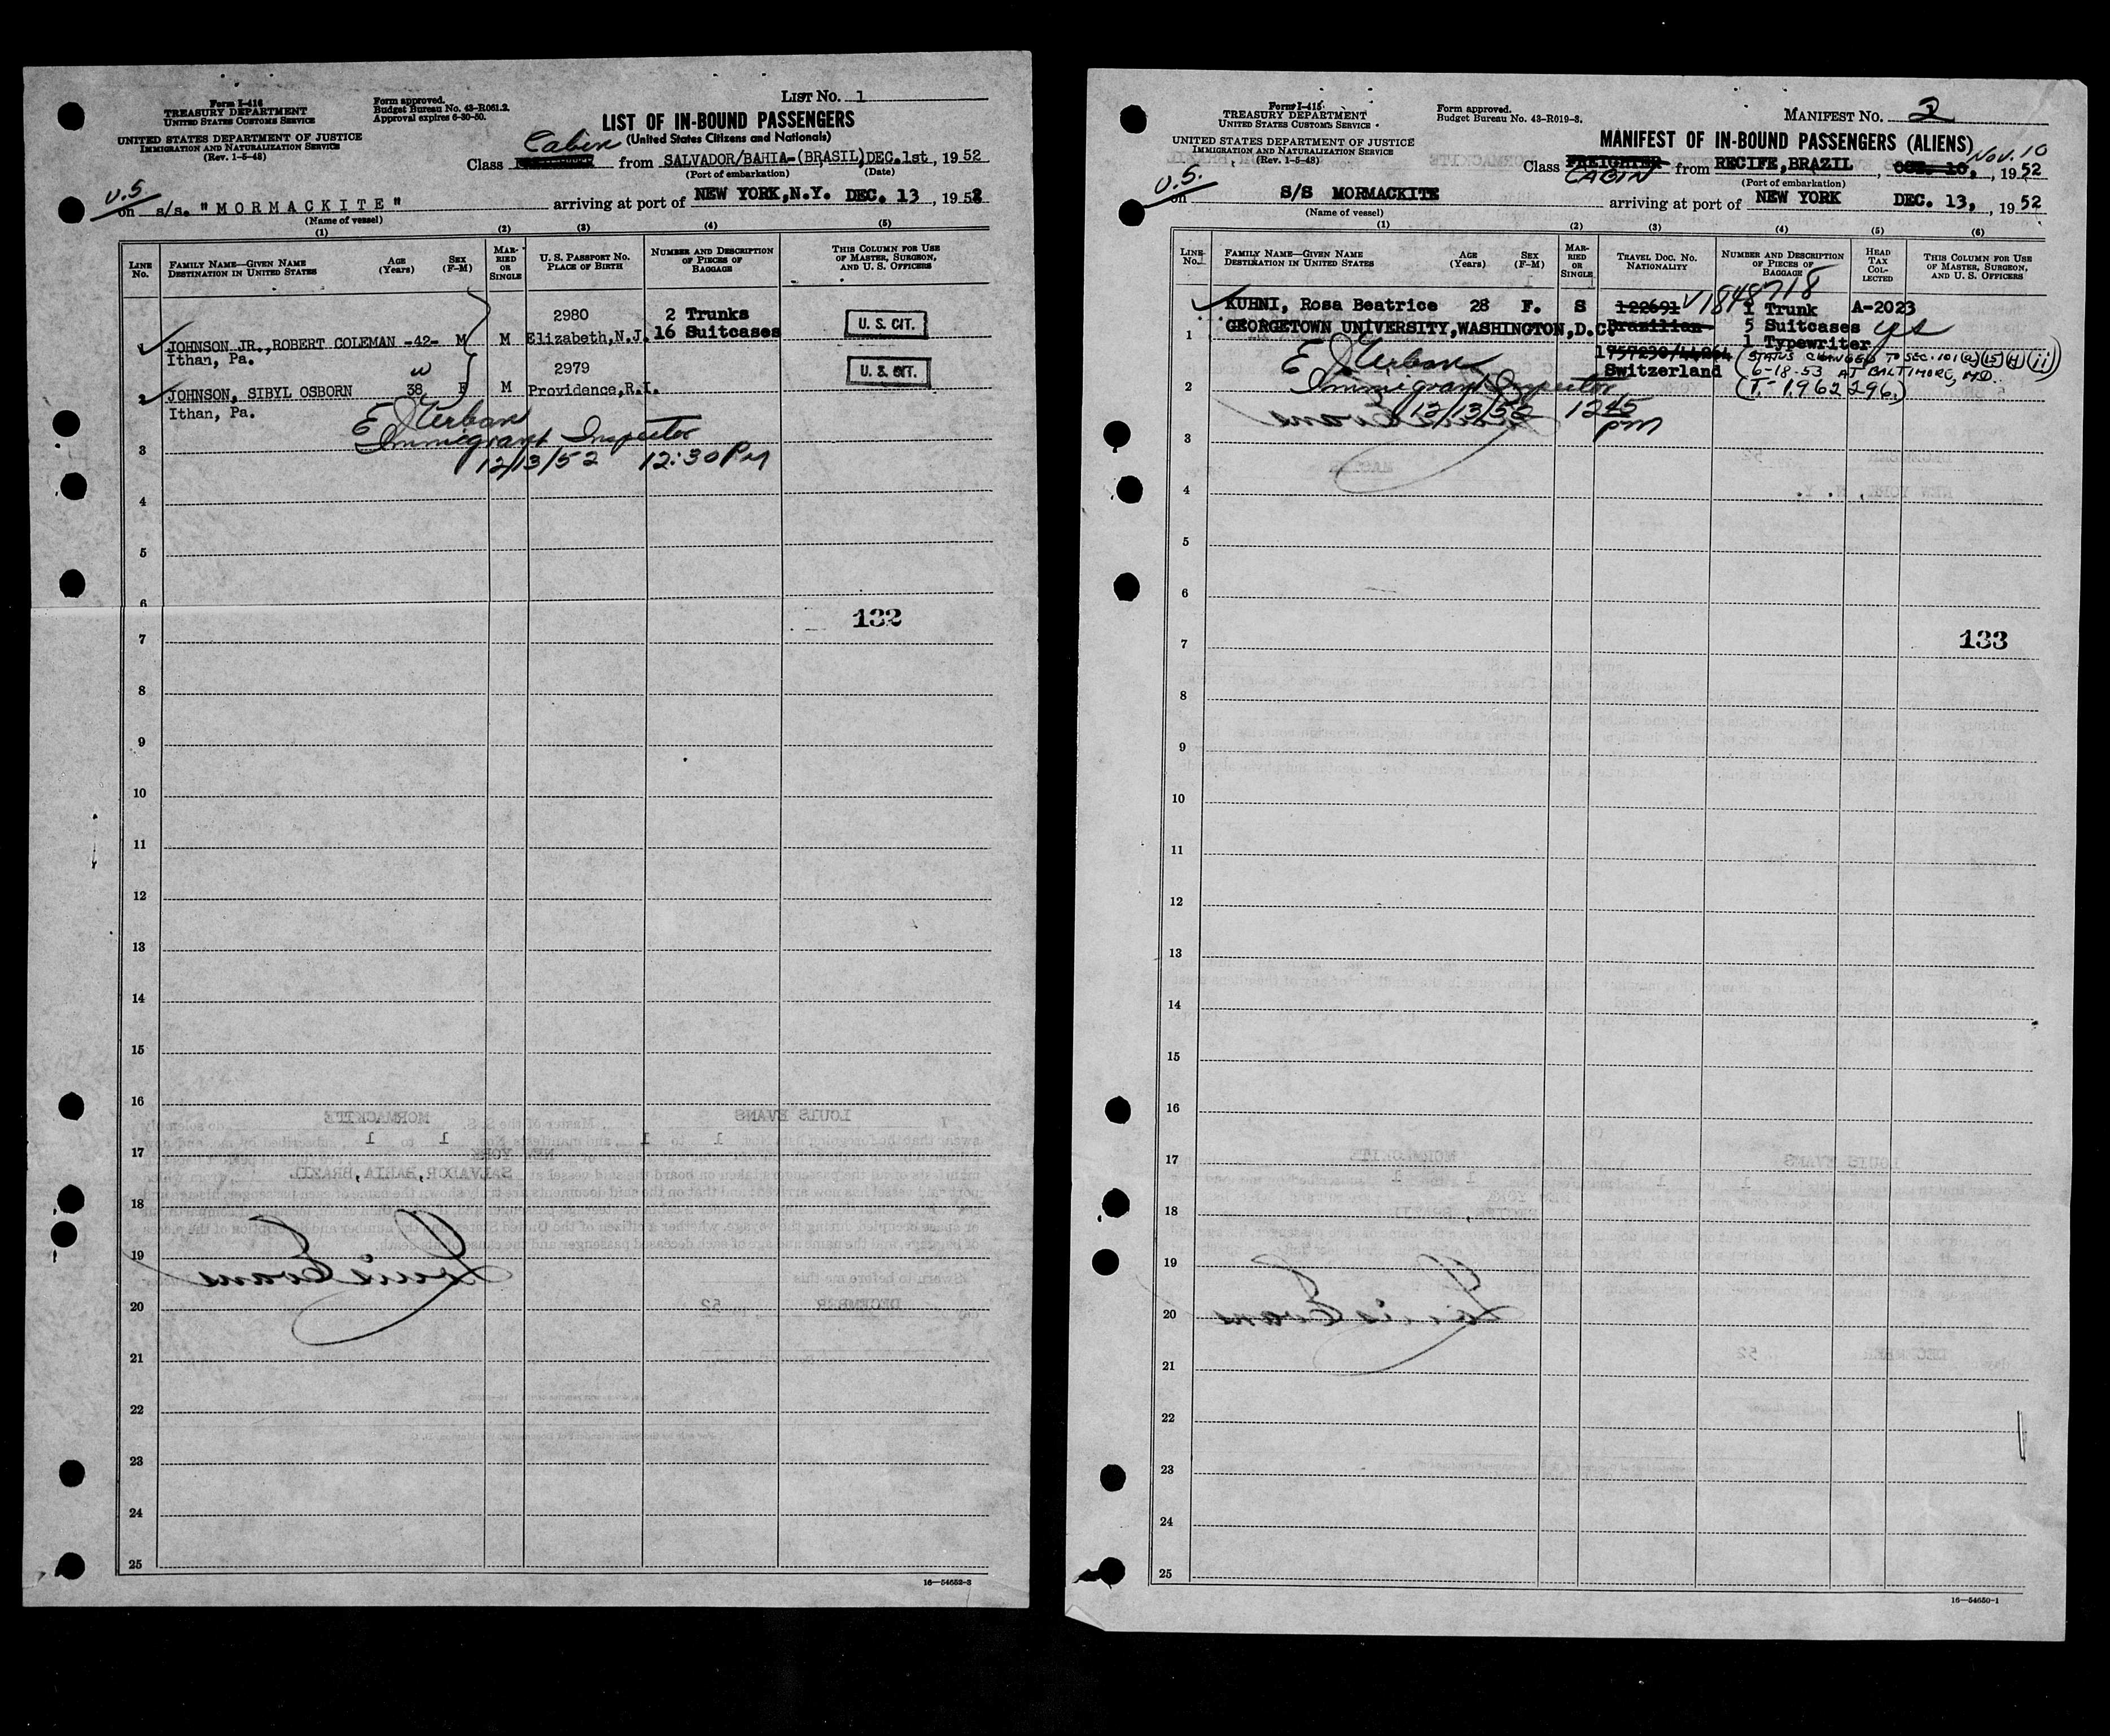 Form I-416
TREASURY DEPARTMENT
UNITED STATES CUSTOMS SERVICE
UNITED STATES DEPARTMENT OF JUSTICE
IMMIGRATION AND NATURALIZATION SERVICE
(Rev. 1-5-48)
Form approved.
Budget Bureau No. 43-R061.2.
Approval expires 6-30-50.
LIST NO. 1
LIST OF IN-BOUND PASSENGERS
(United States Citizens and Nationals)
Class Cabin from SALVADOR/BAHIA-(BRASIL) DEC. 1st, 1952
(Port of embarkation) (Date)
U.S.
on s/s. "MORMACKITE" arriving at port of NEW YORK, N.Y. DEC. 13, 1952
(Name of vessel)
(1) (2) (3) (4) (5)
LINE NO.
FAMILY NAME—GIVEN NAME
DESTINATION IN UNITED STATES
AGE (Years)
SEX (F-M)
MARRIED OR SINGLE
U. S. PASSPORT NO.
PLACE OF BIRTH
NUMBER AND DESCRIPTION OF PIECES OF BAGGAGE
THIS COLUMN FOR USE OF MASTER, SURGEON, AND U. S. OFFICERS
2980 2 Trunks
1 JOHNSON JR., ROBERT COLEMAN -42- M M Elizabeth, N.J. 16 Suitcases U. S. CIT.
Ithan, Pa.
w 2979
2 JOHNSON, SIBYL OSBORN 38 F M Providence, R.I. U. S. CIT.
Ithan, Pa.
Immigrant Inspector
12/13/52 12:30 PM
3
4
5
6
132
7
8
9
10
11
12
13
14
15
16
17
18
19
Louis Evans
20
21
22
23
24
25
16—54652-3
Form I-415
TREASURY DEPARTMENT
UNITED STATES CUSTOMS SERVICE
UNITED STATES DEPARTMENT OF JUSTICE
IMMIGRATION AND NATURALIZATION SERVICE
(Rev. 1-5-48)
Form approved.
Budget Bureau No. 43-R019-3.
MANIFEST NO. 2
MANIFEST OF IN-BOUND PASSENGERS (ALIENS)
Class FREIGHTER CABIN from RECIFE, BRAZIL, OCT. 10, Nov. 10 1952
(Port of embarkation)
U.S.
on S/S MORMACKITE arriving at port of NEW YORK DEC. 13, 1952
(Name of vessel)
(1) (2) (3) (4) (5) (6)
LINE NO.
FAMILY NAME—GIVEN NAME
DESTINATION IN UNITED STATES
AGE (Years)
SEX (F-M)
MARRIED OR SINGLE
TRAVEL DOC. NO.
NATIONALITY
NUMBER AND DESCRIPTION OF PIECES OF BAGGAGE
HEAD TAX COLLECTED
THIS COLUMN FOR USE OF MASTER, SURGEON, AND U. S. OFFICERS
V1848718
KUHNI, Rosa Beatrice 28 F. S 122691 1 Trunk A-2023
1 GEORGETOWN UNIVERSITY, WASHINGTON, D.C. Brazilian 5 Suitcases yes
1 Typewriter
Switzerland
(STATUS CHANGED TO SEC. 101(a)(15)(H)(ii)
6-18-53 AT BALTIMORE, MD.
(T-1962296.)
2 Immigrant Inspector
12/13/52 12 45 pm
3
4
5
6
7
133
8
9
10
11
12
13
14
15
16
17
18
19
20
Louis Evans
21
22
23
24
25
16—54650-1